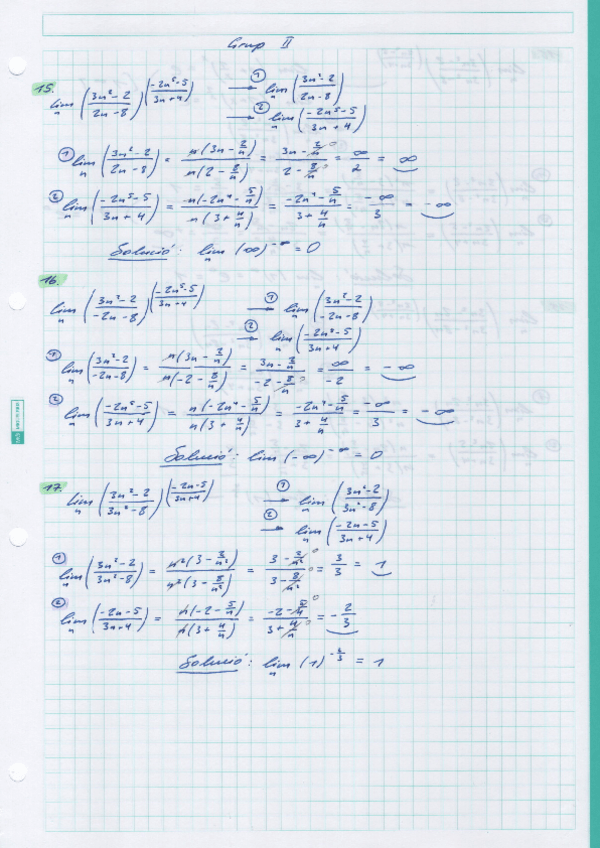 Grup II
15. lim_n ((3n²-2)/(2n-8))^((-2n⁵-5)/(3n+4)) → ① lim_n ((3n²-2)/(2n-8))
→ ② lim_n ((-2n⁵-5)/(3n+4))
① lim_n ((3n²-2)/(2n-8)) = n(3n-2/n)/n(2-8/n) = (3n-2/n)/(2-8/n) = ∞/2 = ∞
② lim_n ((-2n⁵-5)/(3n+4)) = n(-2n⁴-5/n)/n(3+4/n) = (-2n⁴-5/n)/(3+4/n) = -∞/3 = -∞
Solució: lim_n (∞)^-∞ = 0
16. lim_n ((3n²-2)/(-2n-8))^((-2n⁵-5)/(3n+4)) → ① lim_n ((3n²-2)/(-2n-8))
→ ② lim_n ((-2n⁵-5)/(3n+4))
① lim_n ((3n²-2)/(-2n-8)) = n(3n-2/n)/n(-2-8/n) = (3n-2/n)/(-2-8/n) = ∞/-2 = -∞
② lim_n ((-2n⁵-5)/(3n+4)) = n(-2n⁴-5/n)/n(3+4/n) = (-2n⁴-5/n)/(3+4/n) = -∞/3 = -∞
Solució: lim_n (-∞)^-∞ = 0
17. lim_n ((3n²-2)/(3n²-8))^((-2n-5)/(3n+4)) → ① lim_n ((3n²-2)/(3n²-8))
→ ② lim_n ((-2n-5)/(3n+4))
① lim_n ((3n²-2)/(3n²-8)) = n²(3-2/n²)/n²(3-8/n²) = (3-2/n²)/(3-8/n²) = 3/3 = 1
② lim_n ((-2n-5)/(3n+4)) = n(-2-5/n)/n(3+4/n) = (-2-5/n)/(3+4/n) = -2/3
Solució: lim_n (1)^-2/3 = 1